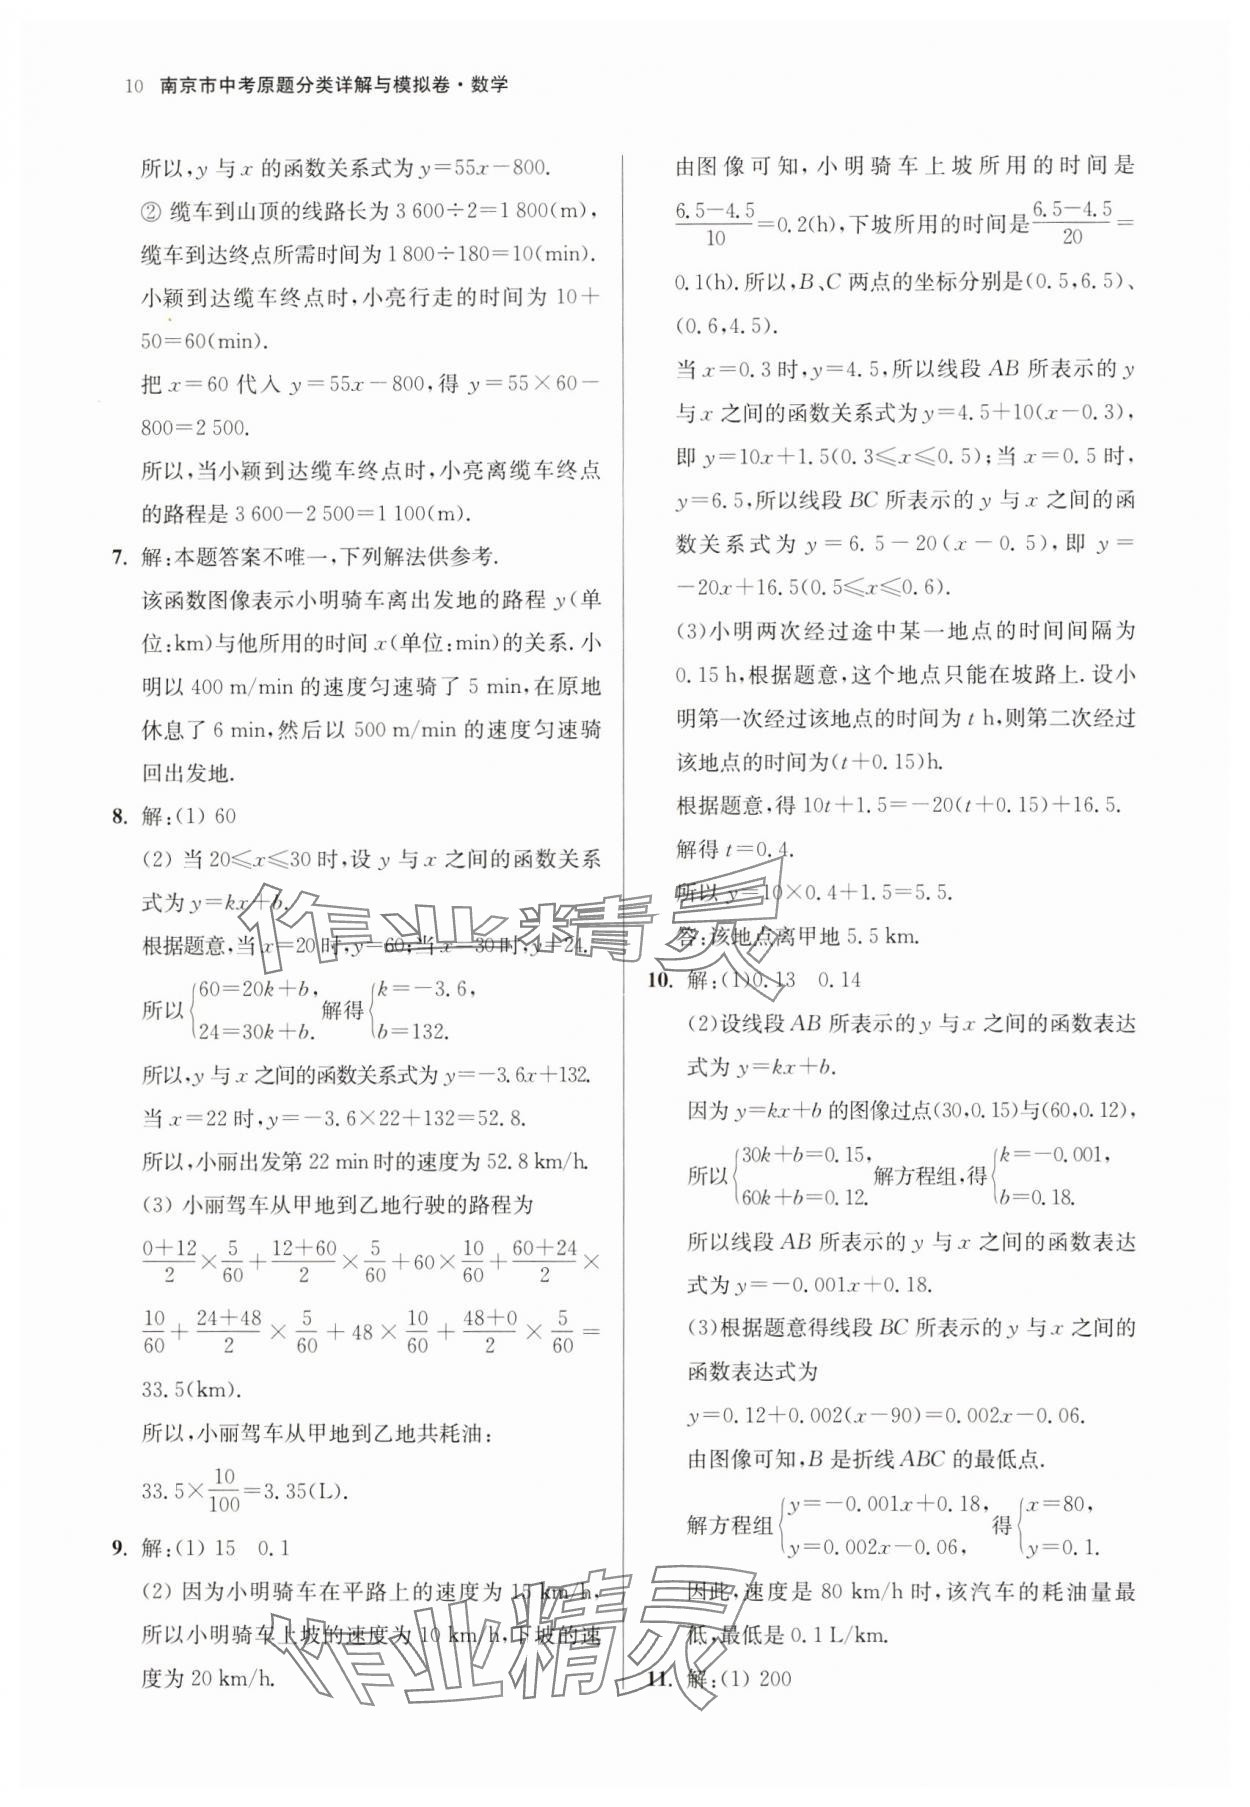 10 南京市中考原题分类详解与模拟卷·数学
所以,y 与 x 的函数关系式为 y=55x-800.
② 缆车到山顶的线路长为 3 600÷2=1 800(m),
缆车到达终点所需时间为 1 800÷180=10(min).
小颖到达缆车终点时,小亮行走的时间为 10+
50=60(min).
把 x=60 代入 y=55x-800,得 y=55×60-
800=2 500.
所以,当小颖到达缆车终点时,小亮离缆车终点
的路程是 3 600-2 500=1 100(m).
7. 解:本题答案不唯一,下列解法供参考.
该函数图像表示小明骑车离出发地的路程 y(单
位:km)与他所用的时间 x(单位:min)的关系. 小
明以 400 m/min 的速度匀速骑了 5 min,在原地
休息了 6 min,然后以 500 m/min 的速度匀速骑
回出发地.
8. 解:(1) 60
(2) 当 20≤x≤30 时,设 y 与 x 之间的函数关系
式为 y=kx+b.
根据题意,当 x=20 时,y=60;当 x=30 时,y=24.
所以{60=20k+b, 24=30k+b. 解得{k=-3.6, b=132.
所以,y 与 x 之间的函数关系式为 y=-3.6x+132.
当 x=22 时,y=-3.6×22+132=52.8.
所以,小丽出发第 22 min时的速度为 52.8 km/h.
(3) 小丽驾车从甲地到乙地行驶的路程为
(0+12)/2×5/60+(12+60)/2×5/60+60×10/60+(60+24)/2×
10/60+(24+48)/2×5/60+48×10/60+(48+0)/2×5/60=
33.5(km).
所以,小丽驾车从甲地到乙地共耗油:
33.5×10/100=3.35(L).
9. 解:(1) 15 0.1
(2) 因为小明骑车在平路上的速度为 15 km/h,
所以小明骑车上坡的速度为 10 km/h,下坡的速
度为 20 km/h.
由图像可知,小明骑车上坡所用的时间是
(6.5-4.5)/10=0.2(h),下坡所用的时间是(6.5-4.5)/20=
0.1(h).所以,B、C 两点的坐标分别是(0.5,6.5)、
(0.6,4.5).
当 x=0.3 时,y=4.5,所以线段 AB 所表示的 y
与 x 之间的函数关系式为 y=4.5+10(x-0.3),
即 y=10x+1.5(0.3≤x≤0.5);当 x=0.5 时,
y=6.5,所以线段 BC 所表示的 y 与 x 之间的函
数关系式为 y=6.5-20(x-0.5),即 y=
-20x+16.5(0.5≤x≤0.6).
(3)小明两次经过途中某一地点的时间间隔为
0.15 h,根据题意,这个地点只能在坡路上. 设小
明第一次经过该地点的时间为 t h,则第二次经过
该地点的时间为(t+0.15)h.
根据题意,得 10t+1.5=-20(t+0.15)+16.5.
解得 t=0.4.
所以 y=10×0.4+1.5=5.5.
答:该地点离甲地 5.5 km.
10. 解:(1)0.13 0.14
(2)设线段 AB 所表示的 y 与 x 之间的函数表达
式为 y=kx+b.
因为 y=kx+b 的图像过点(30,0.15)与(60,0.12),
所以{30k+b=0.15, 60k+b=0.12. 解方程组,得{k=-0.001, b=0.18.
所以线段 AB 所表示的 y 与 x 之间的函数表达
式为 y=-0.001x+0.18.
(3)根据题意得线段 BC 所表示的 y 与 x 之间的
函数表达式为
y=0.12+0.002(x-90)=0.002x-0.06.
由图像可知,B 是折线 ABC 的最低点.
解方程组{y=-0.001x+0.18, y=0.002x-0.06, 得{x=80, y=0.1.
因此,速度是 80 km/h 时,该汽车的耗油量最
低,最低是 0.1 L/km.
11. 解:(1) 200
作业精灵
作业精灵